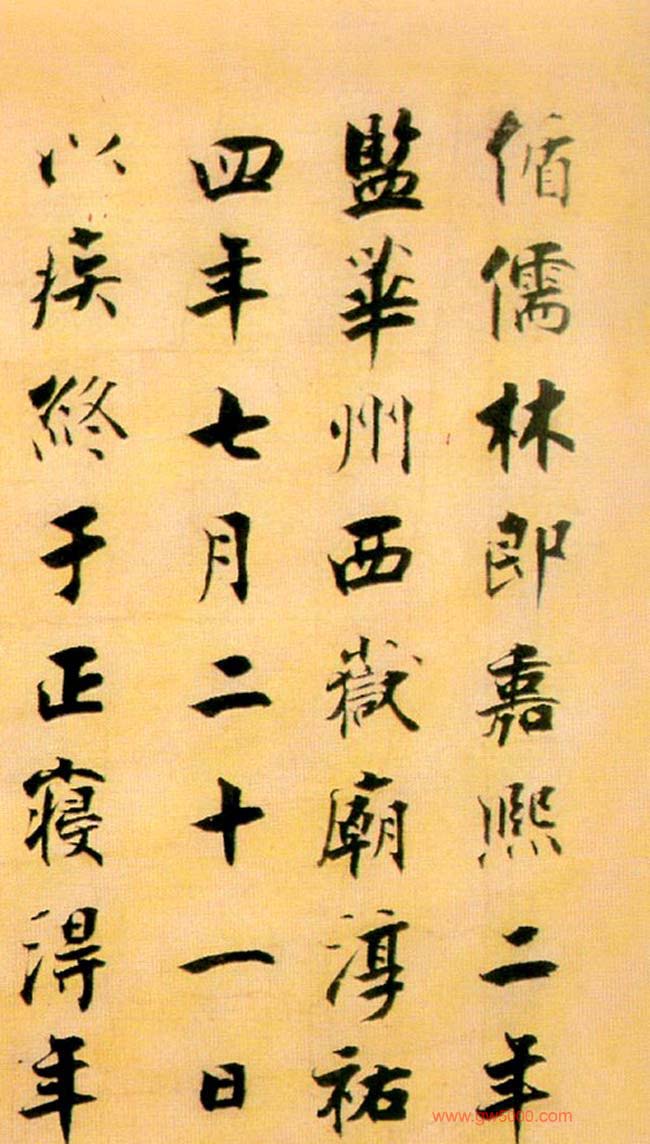 循儒林郎嘉熙二年
監華州西嶽廟淳祐
四年七月二十一日
以疾終于正寢得年
www.gw5000.com